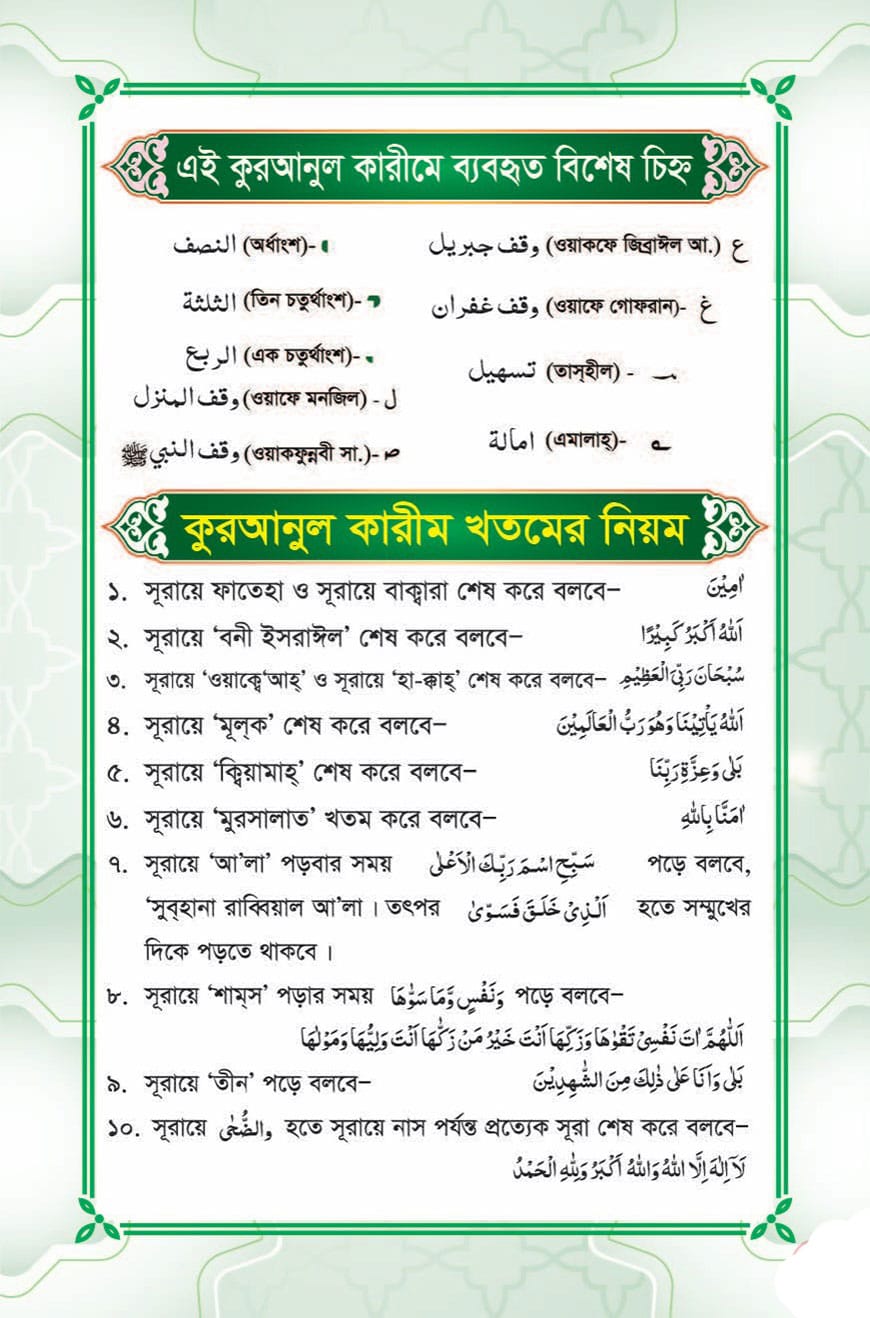 এই কুরআনুল কারীমে ব্যবহৃত বিশেষ চিহ্ন
النصف (অর্ধাংশ)-
الثلثة (তিন চতুর্থাংশ)-
الربع (এক চতুর্থাংশ)-
وقف المنزل (ওয়াফে মনজিল) - ل
وقف النبي ﷺ (ওয়াকফুন্নবী সা.)- ص
وقف جبريل (ওয়াকফে জিব্রাঈল আ.) ع
وقف غفران (ওয়াফে গোফরান)- غ
تسهيل (তাস্‌হীল) -
امالة (এমালাহ্)- ے
কুরআনুল কারীম খতমের নিয়ম
১. সূরায়ে ফাতেহা ও সূরায়ে বাক্বারা শেষ করে বলবে– اٰمِيْنَ
২. সূরায়ে ‘বনী ইসরাঈল’ শেষ করে বলবে– اَللّٰهُ اَكْبَرُ كَبِيْرًا
৩. সূরায়ে ‘ওয়াক্বে‘আহ্’ ও সূরায়ে ‘হা-ক্কাহ্’ শেষ করে বলবে– سُبْحَانَ رَبِّىَ الْعَظِيْمِ
৪. সূরায়ে ‘মূল্‌ক’ শেষ করে বলবে– اَللّٰهُ يَأْتِيْنَا وَهُوَ رَبُّ الْعَالَمِيْنَ
৫. সূরায়ে ‘ক্বিয়ামাহ্’ শেষ করে বলবে– بَلٰى وَعِزَّةِ رَبِّنَا
৬. সূরায়ে ‘মুরসালাত’ খতম করে বলবে– اٰمَنَّا بِاللّٰهِ
৭. সূরায়ে ‘আ’লা’ পড়বার সময় سَبِّحِ اسْمَ رَبِّكَ الْاَعْلٰى পড়ে বলবে,
‘সুব্‌হানা রাব্বিয়াল আ’লা। তৎপর اَلَّذِىْ خَلَقَ فَسَوّٰى হতে সম্মুখের
দিকে পড়তে থাকবে।
৮. সূরায়ে ‘শাম্‌স’ পড়ার সময় وَنَفْسٍ وَّمَا سَوّٰهَا পড়ে বলবে–
اَللّٰهُمَّ اٰتِ نَفْسِىْ تَقْوٰهَا وَزَكِّهَا اَنْتَ خَيْرُ مَنْ زَكّٰهَا اَنْتَ وَلِيُّهَا وَمَوْلٰهَا
৯. সূরায়ে ‘তীন’ পড়ে বলবে– بَلٰى وَاَنَا عَلٰى ذٰلِكَ مِنَ الشّٰهِدِيْنَ
১০. সূরায়ে والضُّحٰى হতে সূরায়ে নাস পর্যন্ত প্রত্যেক সূরা শেষ করে বলবে–
لَآ اِلٰهَ اِلَّا اللّٰهُ وَاللّٰهُ اَكْبَرُ وَلِلّٰهِ الْحَمْدُ